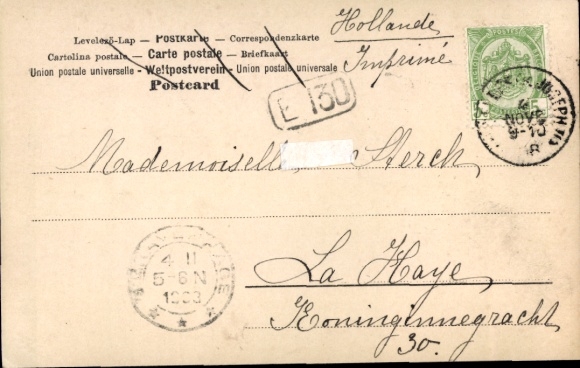 Levelező-Lap — Postkarte — Correspondenzkarte
Cartolina postale — Carte postale — Briefkaart
Union postale universelle - Weltpostverein - Union postale universale
Postcard
Hollande
Imprimé
E 130
NOV
Mademoiselle Sterck
4 11
5-6N
La Haye,
Koninginnegracht
30.